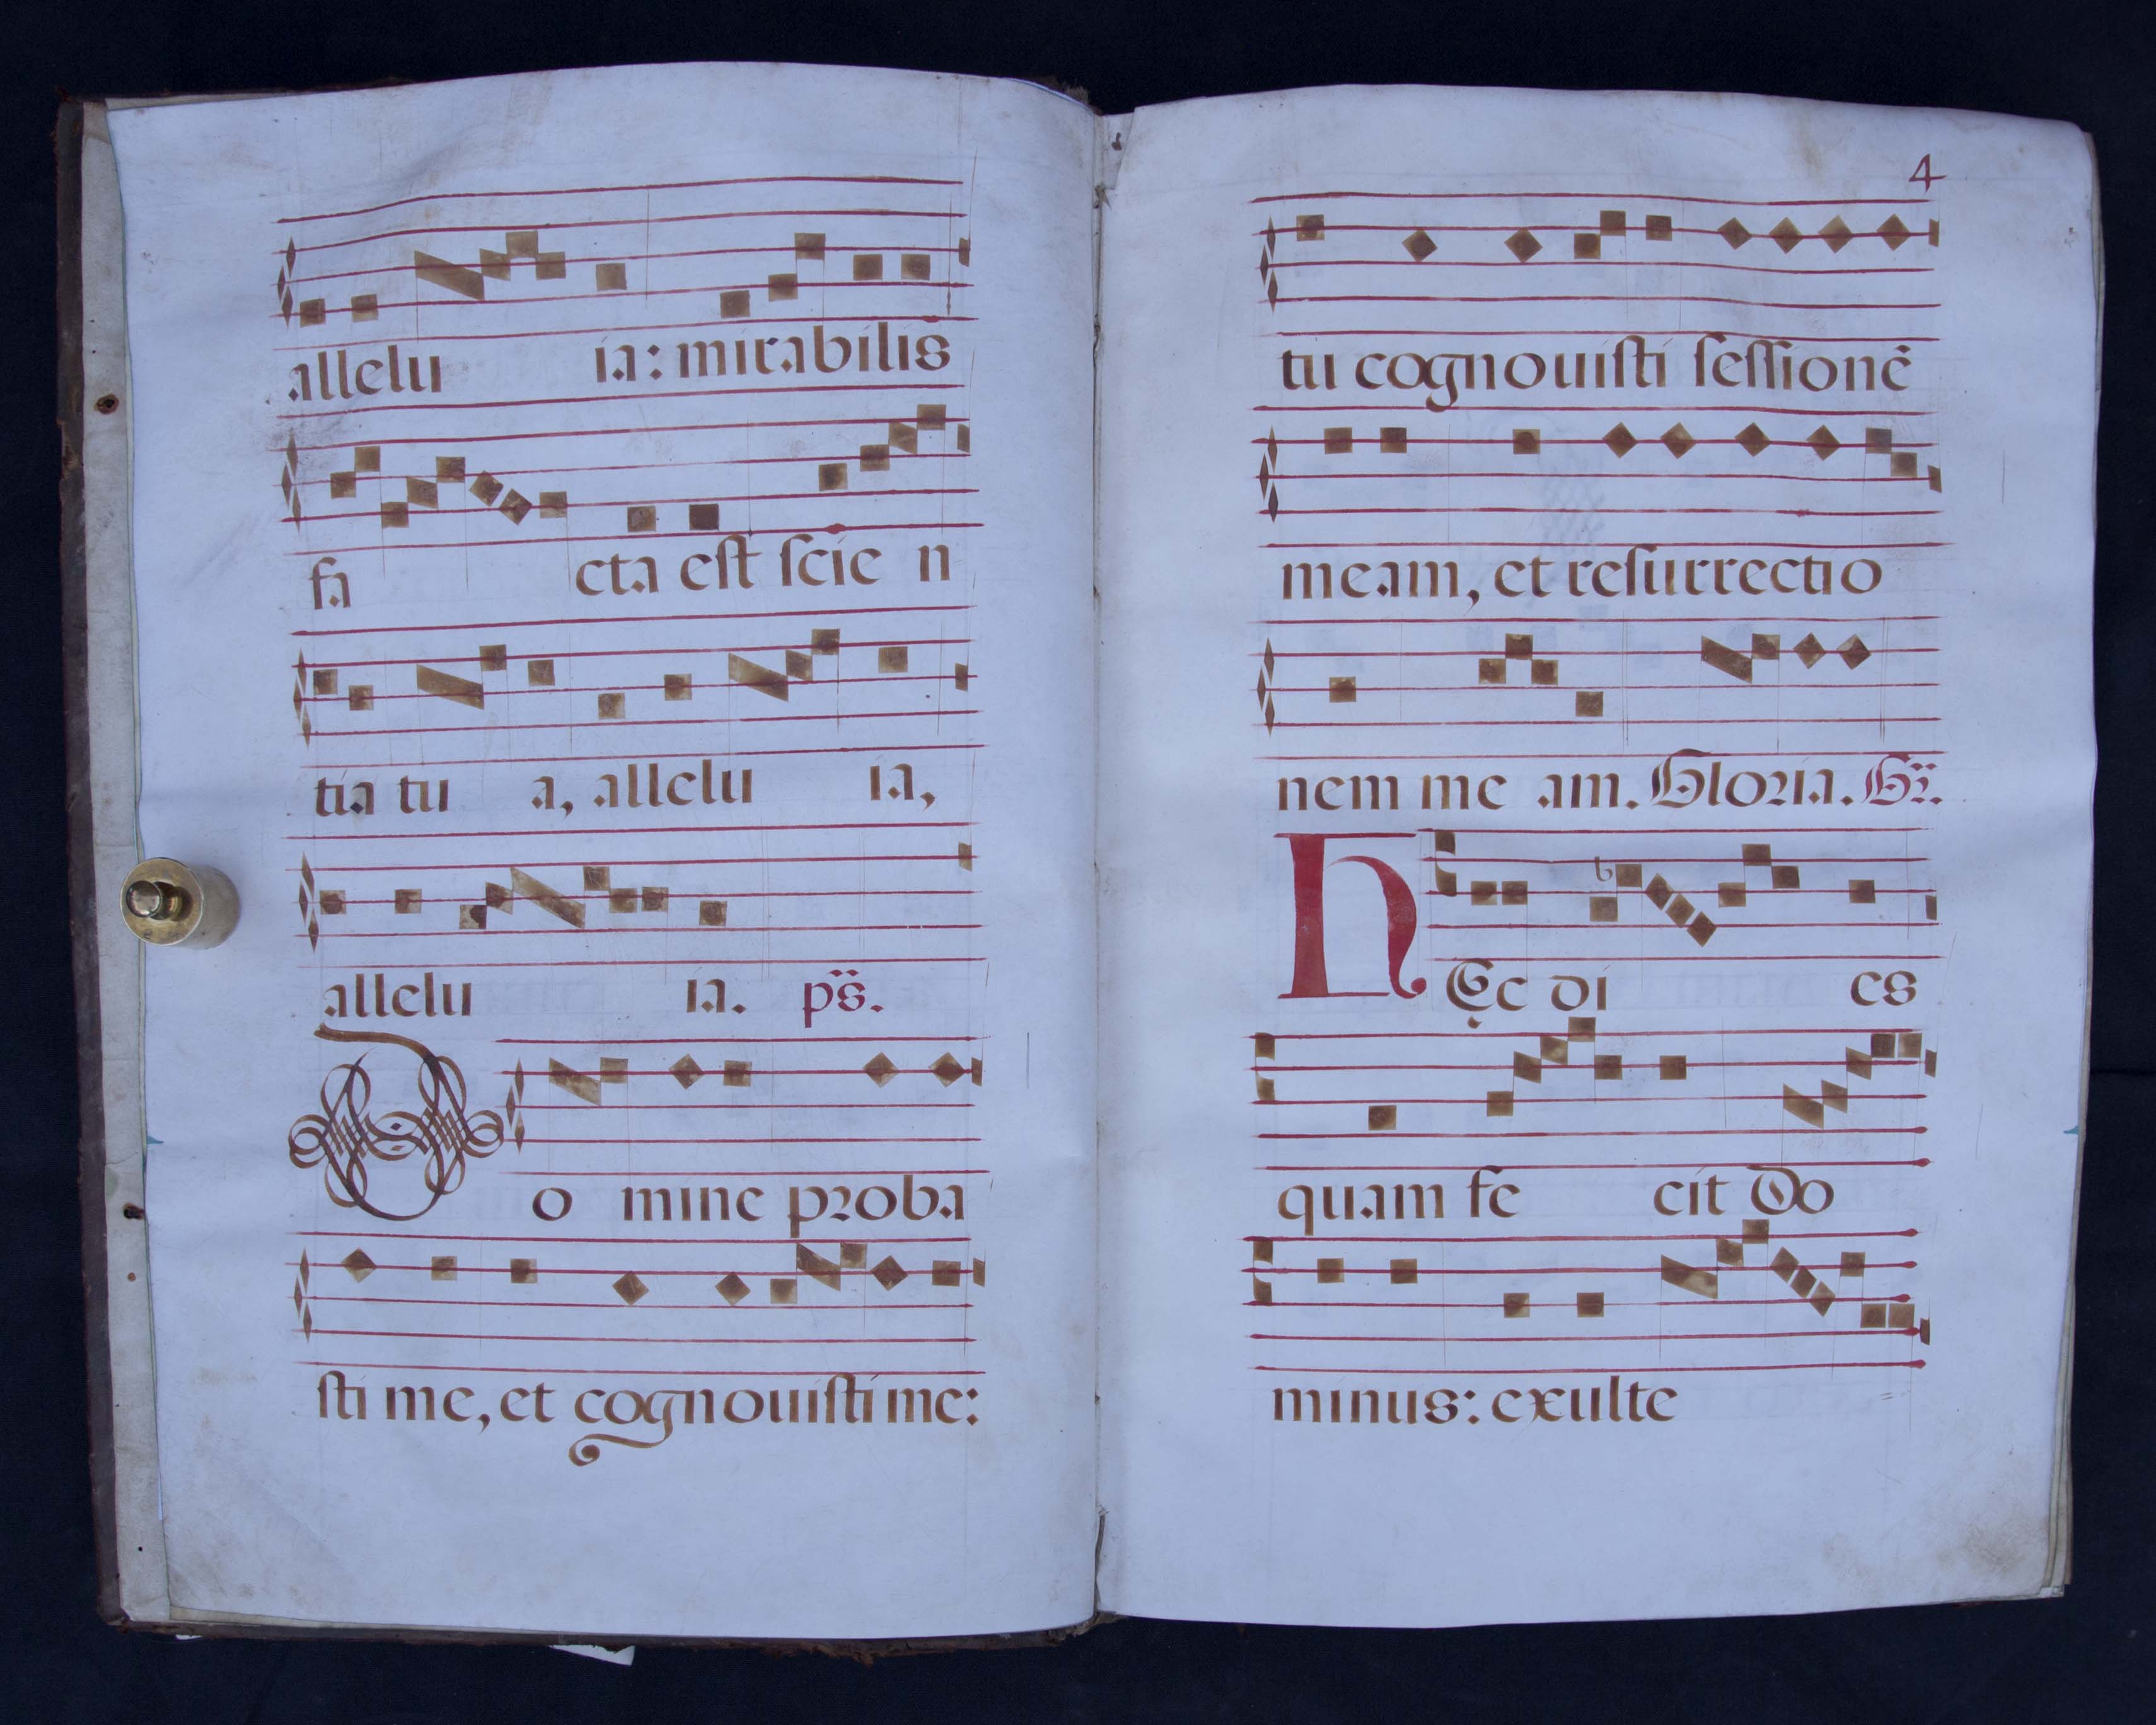 allelu ia: mirabilis
fa cta est scie n
tia tu a, allelu ia,
allelu ia. ps̈.
D o mine proba
sti me, et cognouisti me:
4
tu cognouisti sessionē
meam, et resurrectio
nem me am. Gloria. Gr̈.
H Ęc di es
quam fe cit Do
minus: exulte